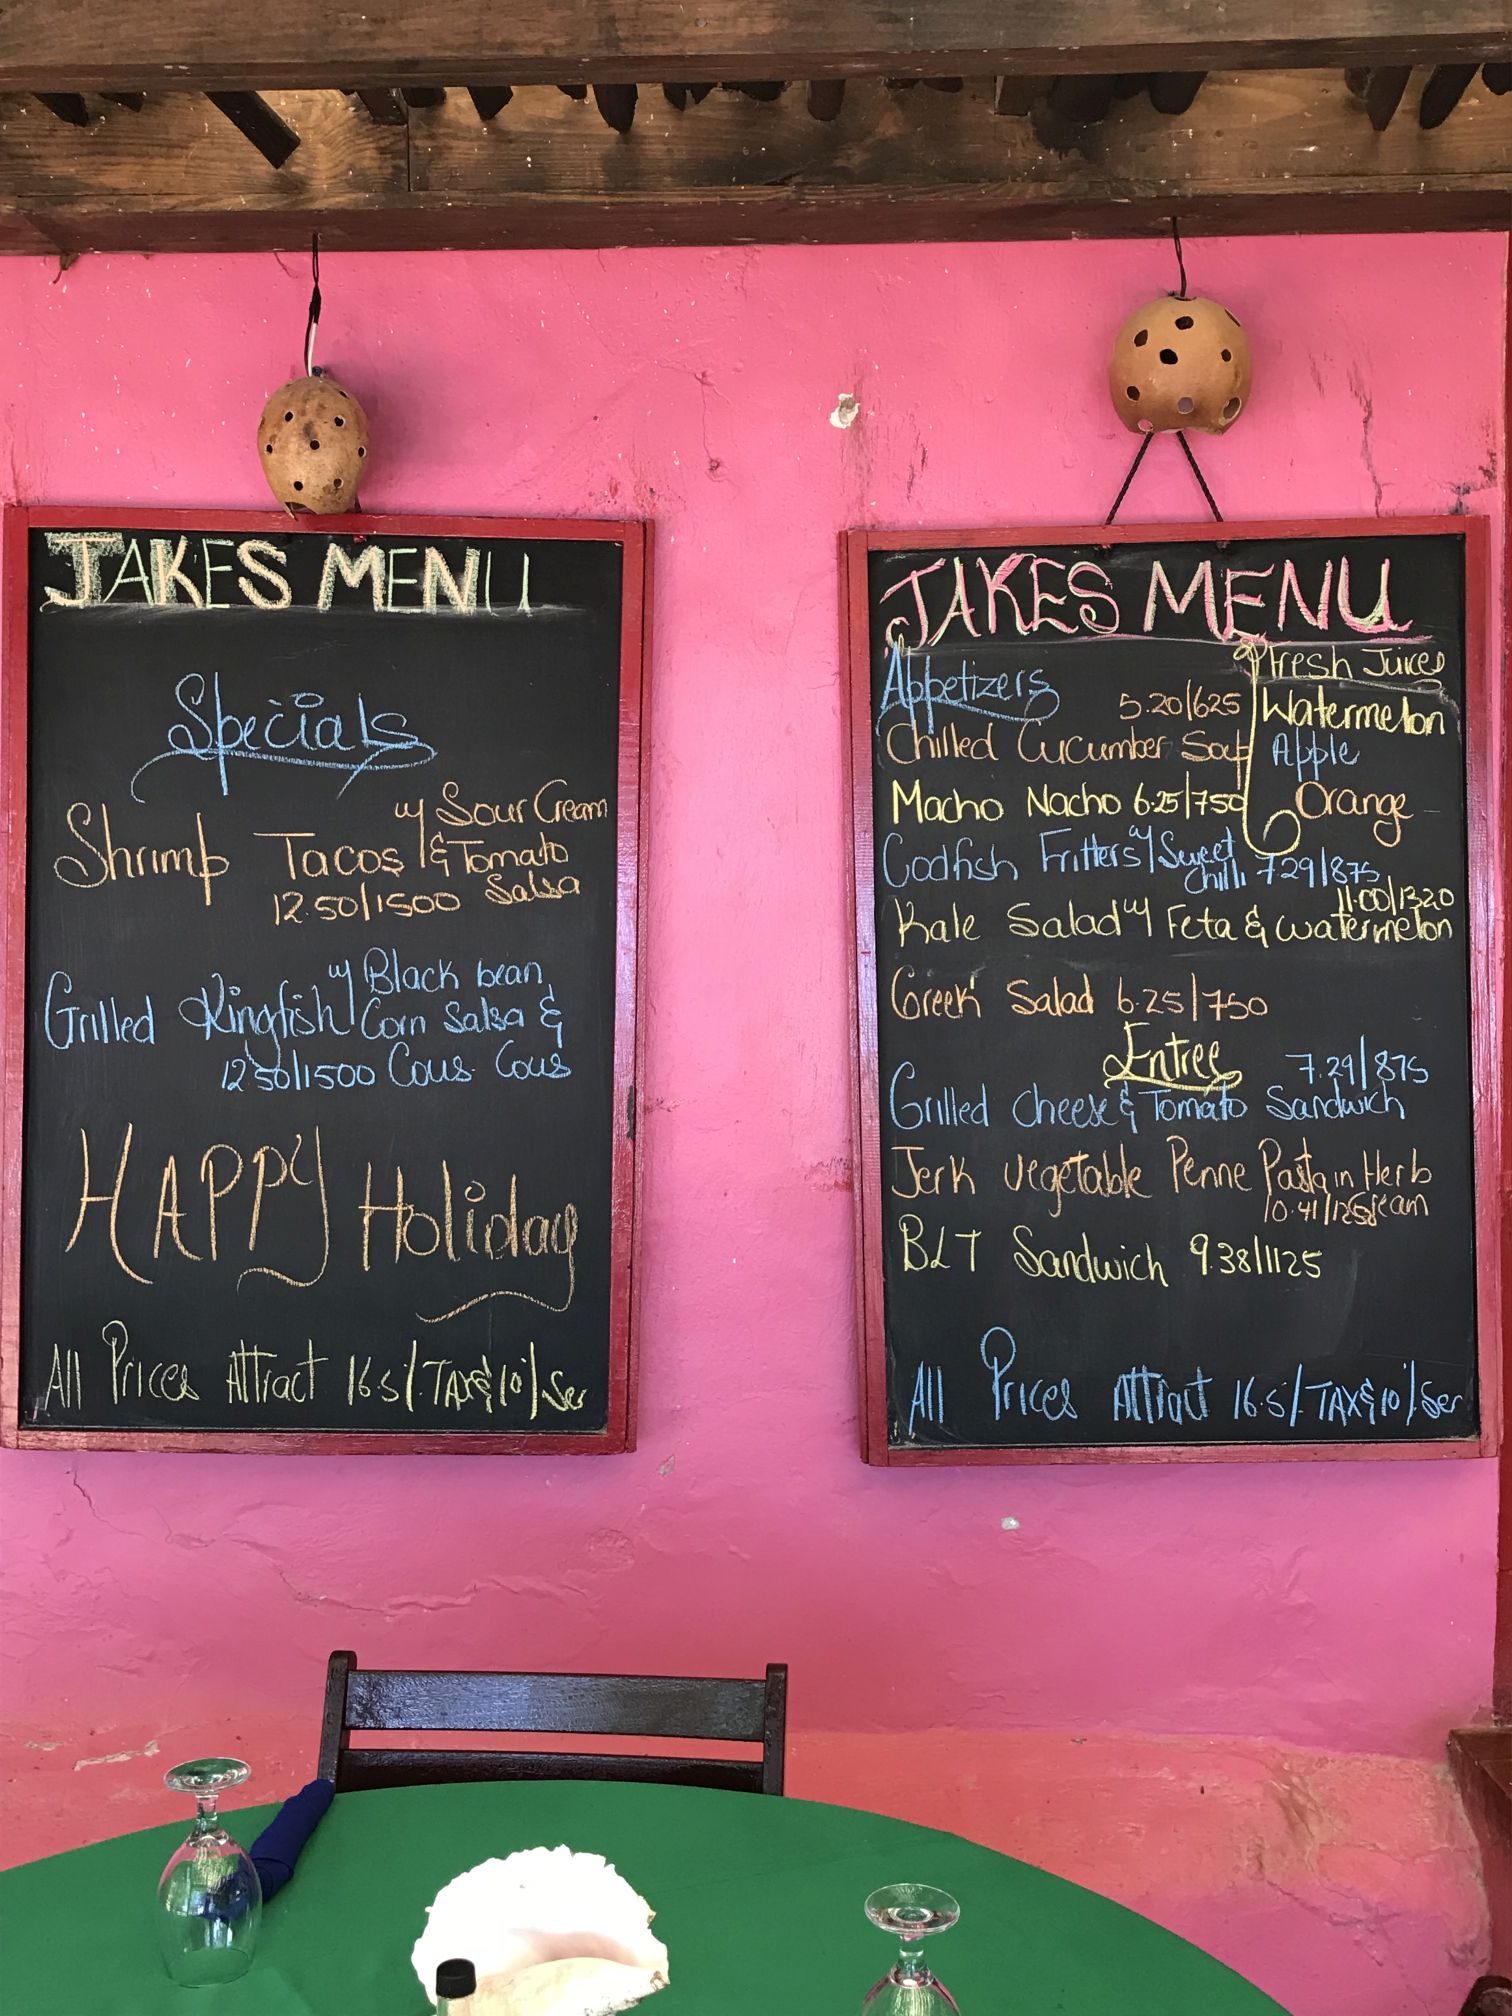 JAKES MENU
Specials
Shrimp Tacos w/ Sour Cream
& Tomato
12.50/1500 Salsa
Grilled Kingfish w/ Black bean
Corn Salsa &
1250/1500 Cous Cous
HAPPY Holiday
All Prices Attract 16.5% TAX & 10% Ser
JAKES MENU
Appetizers
5.20/625
Chilled Cucumber Soup
Macho Nacho 6.25/750
Codfish Fritters w/ Sweet
Chilli 729/875
11.00/1320
Kale Salad w/ Feta & Watermelon
Greek Salad 6.25/750
Fresh Juices
Watermelon
Apple
Orange
Entree
7.29/875
Grilled Cheese & Tomato Sandwich
Jerk Vegetable Penne Pasta in Herb
10.41/1250 Cream
BLT Sandwich 9.38/1125
All Prices Attract 16.5% TAX & 10% Ser